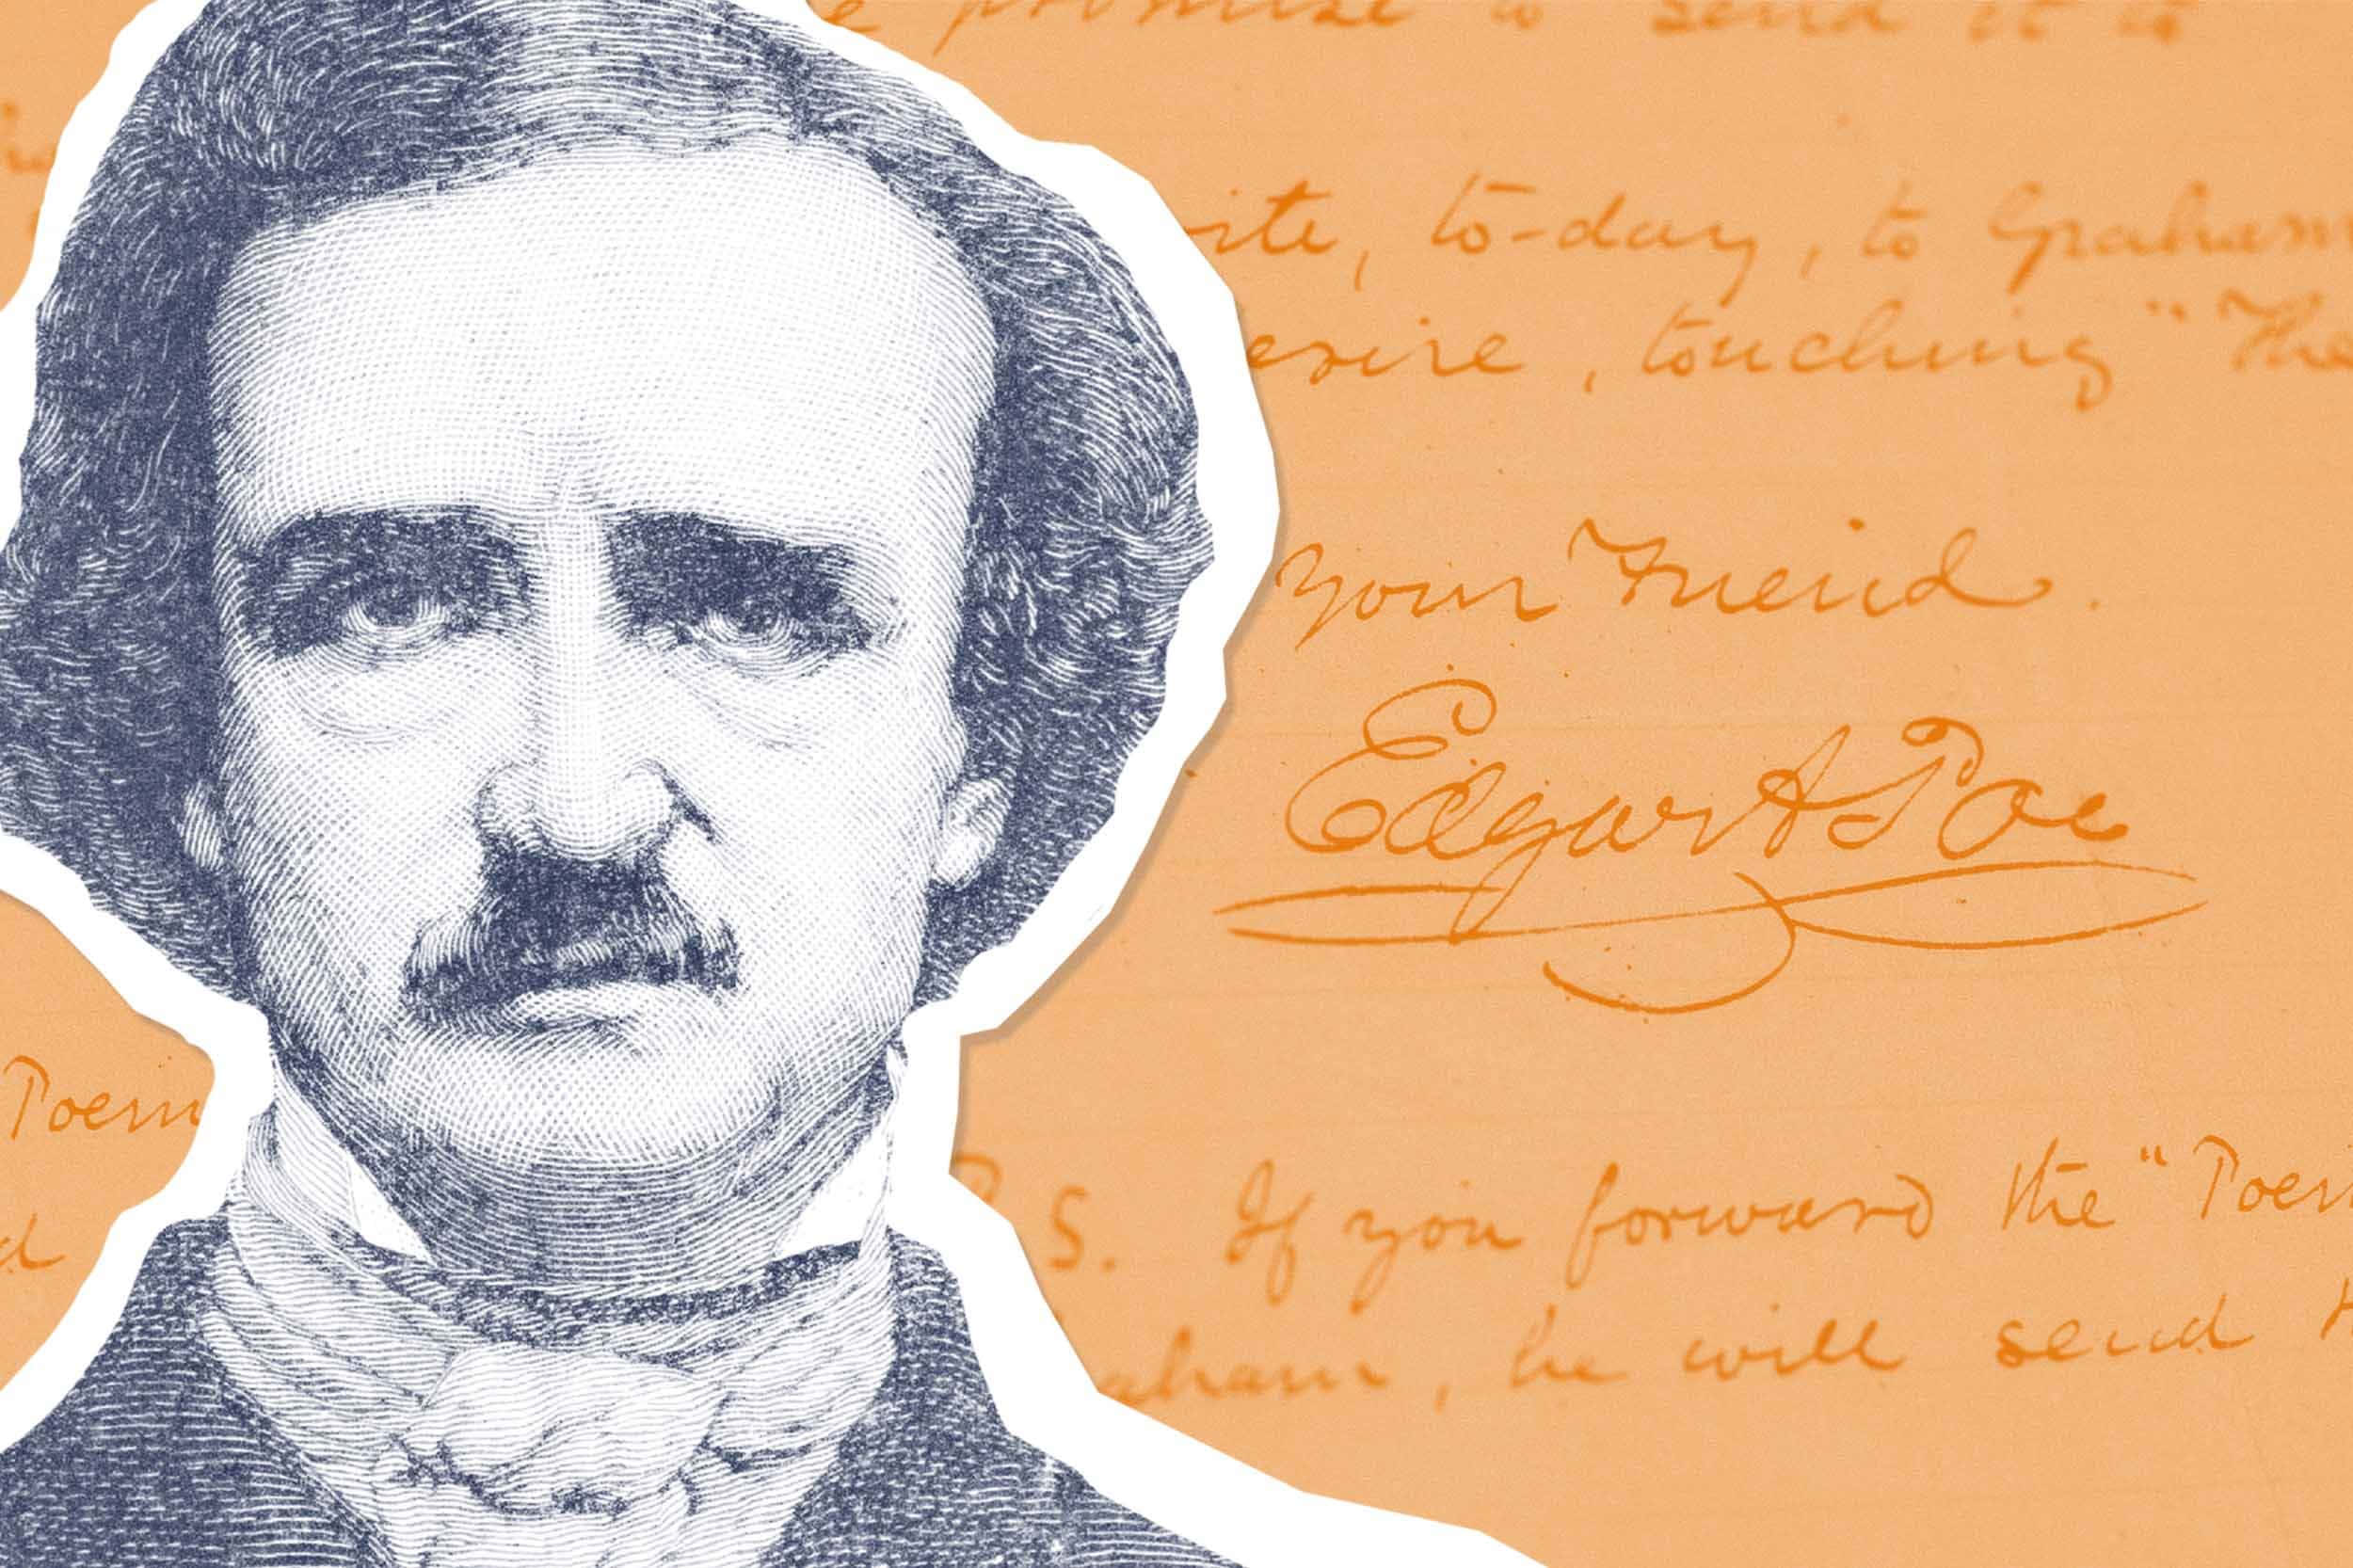 promise to send it to
ite, to-day, to Graham
esire, touching "The
Your Friend.
Edgar A Poe
Poem
P.S. If you forward the "Poem
d
aham, he will send